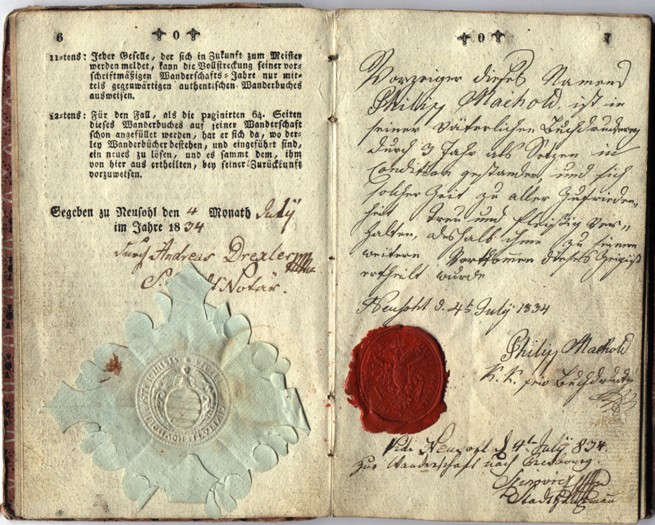 6
11-tens: Jeder Geselle, der sich in Zukunft zum Meister
werden meldet, kann die Vollstreckung seiner vor-
schriftmäßigen Wanderschafts-Jahre nur mit-
tels gegenwärtigen authentischen Wanderbuches
ausweisen.
12-tens: Für den Fall, als die paginirten 64. Seiten
dieses Wanderbuches auf seiner Wanderschaft
schon angefüllet werden, hat er sich da, wo der-
ley Wanderbücher bestehen, und eingeführt sind,
ein neues zu lösen, und es sammt dem, ihm
von hier aus ertheilten, bey seiner Zurückkunft
vorzuweisen.
Gegeben zu Neusohl den 4 Monath July
im Jahre 1834
durch Andreas Drexler
Notär.
7
Vorzeiger dieses Namens
Philipp Machold, ist in
seiner väterlichen Buchdruckerey
durch 3 Jahr als Setzer in
Condition gestanden, und sich
solcher Zeit zu aller Zufrieden-
heit treu und fleißig ver-
halten, deshalb ihme zu seinem
weitern Fortkommen dieses Zeugniß
ertheilt wurde
Neusohl d. 4t July 1834
Philipp Machold
K. K. priv Buchdrucker
Vidi Neusohl d 4t July 834.
zur Wanderschaft nach Pressburg.
Stadthauptmann